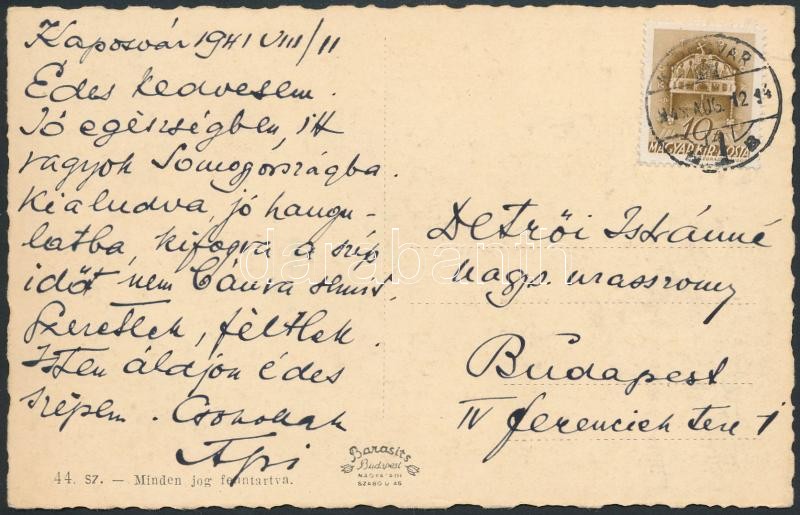 Kaposvár 1941 VIII/11
Édes kedvesem.
Jó egészségben, itt
vagyok Somogyországba.
Kialudva, jó hangu-
latba, kifogva a szép
időt nem bánva semmit.
Szeretlek, féltlek.
Isten áldjon édes
szépem. Csókolak
Api
44. SZ. — Minden jog fenntartva.
Barasits
Budapest
SZABÓ U 46
AUG. 12 14
10
MAGYAR KIR. POSTA
Detrői Istvánné
nags. urasszony
Budapest
IV ferenciek tere 1
darabanth